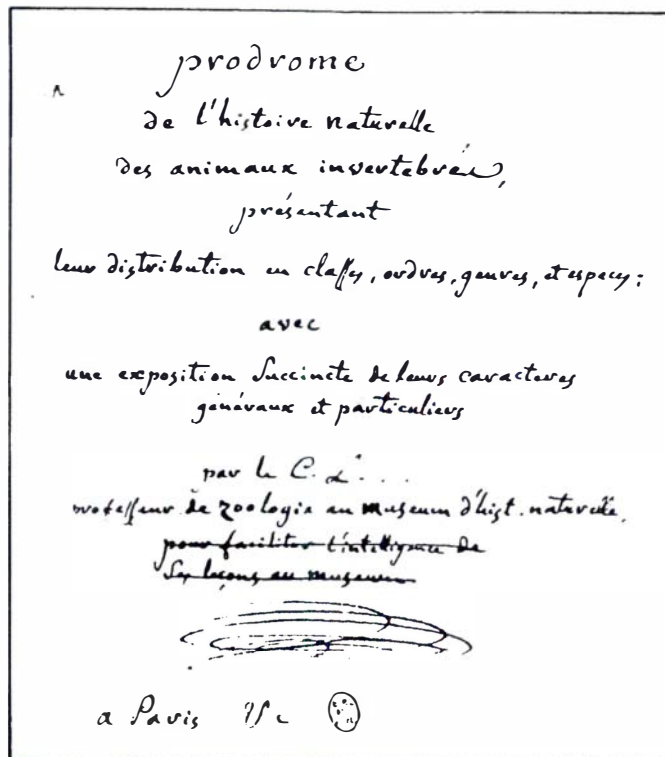 prodrome
de l'histoire naturelle
des animaux invertebrés,
présentant
leur distribution en classes, ordres, genres, et especes;
avec
une exposition succincte de leurs caracteres
généraux et particuliers
par le C. L. . . .
professeur de zoologie au museum d'hist. naturelle.
pour faciliter l'intelligence de
ses leçons au museum
a Paris